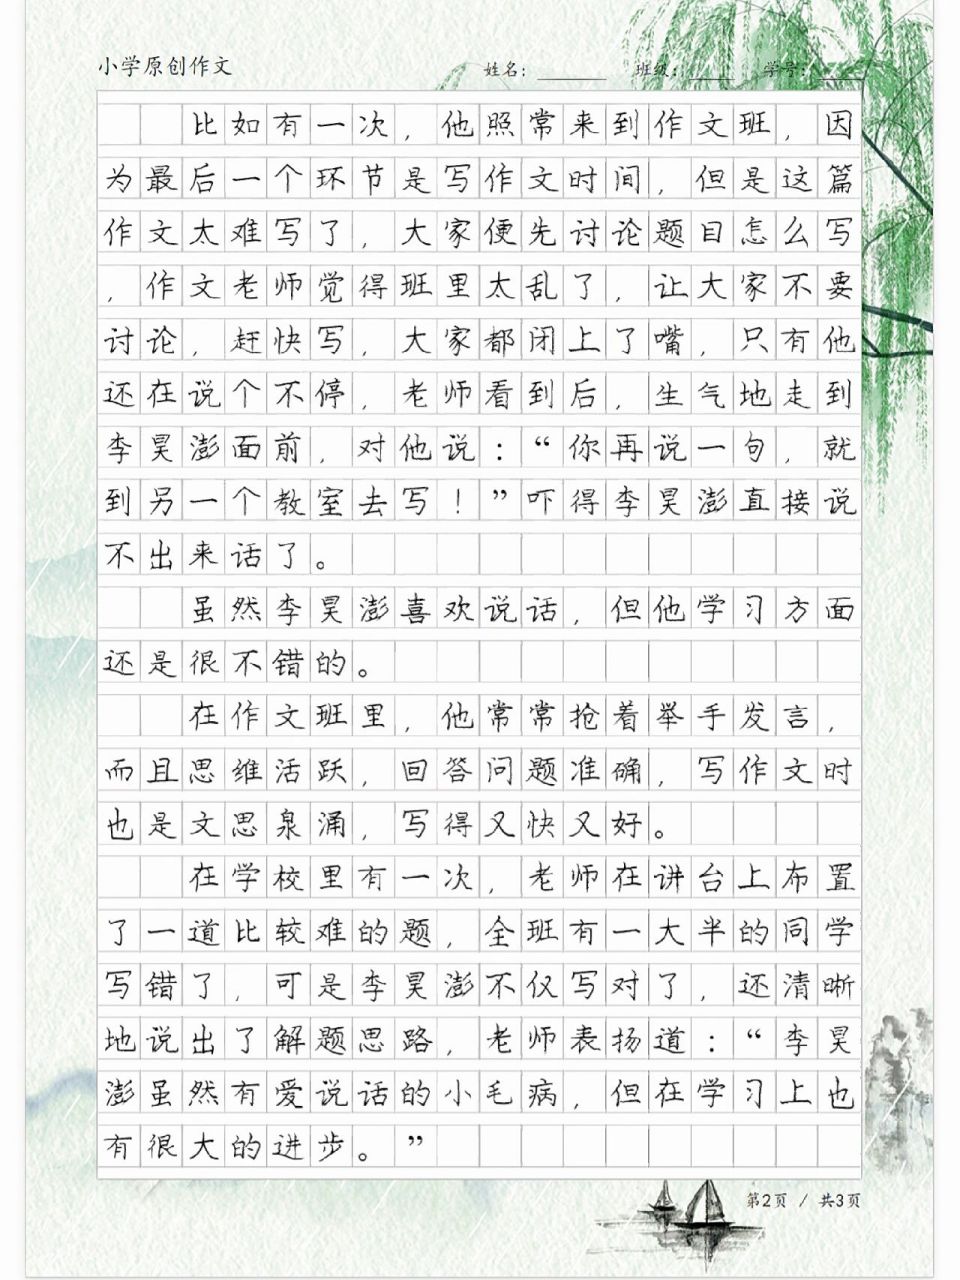 小学原创作文 姓名: 班级: 学号:
比如有一次，他照常来到作文班，因
为最后一个环节是写作文时间，但是这篇
作文太难写了，大家便先讨论题目怎么写
，作文老师觉得班里太乱了，让大家不要
讨论，赶快写，大家都闭上了嘴，只有他
还在说个不停，老师看到后，生气地走到
李昊澎面前，对他说：“你再说一句，就
到另一个教室去写！”吓得李昊澎直接说
不出来话了。
虽然李昊澎喜欢说话，但他学习方面
还是很不错的。
在作文班里，他常常抢着举手发言，
而且思维活跃，回答问题准确，写作文时
也是文思泉涌，写得又快又好。
在学校里有一次，老师在讲台上布置
了一道比较难的题，全班有一大半的同学
写错了，可是李昊澎不仅写对了，还清晰
地说出了解题思路，老师表扬道：“李昊
澎虽然有爱说话的小毛病，但在学习上也
有很大的进步。”
第2页 / 共3页